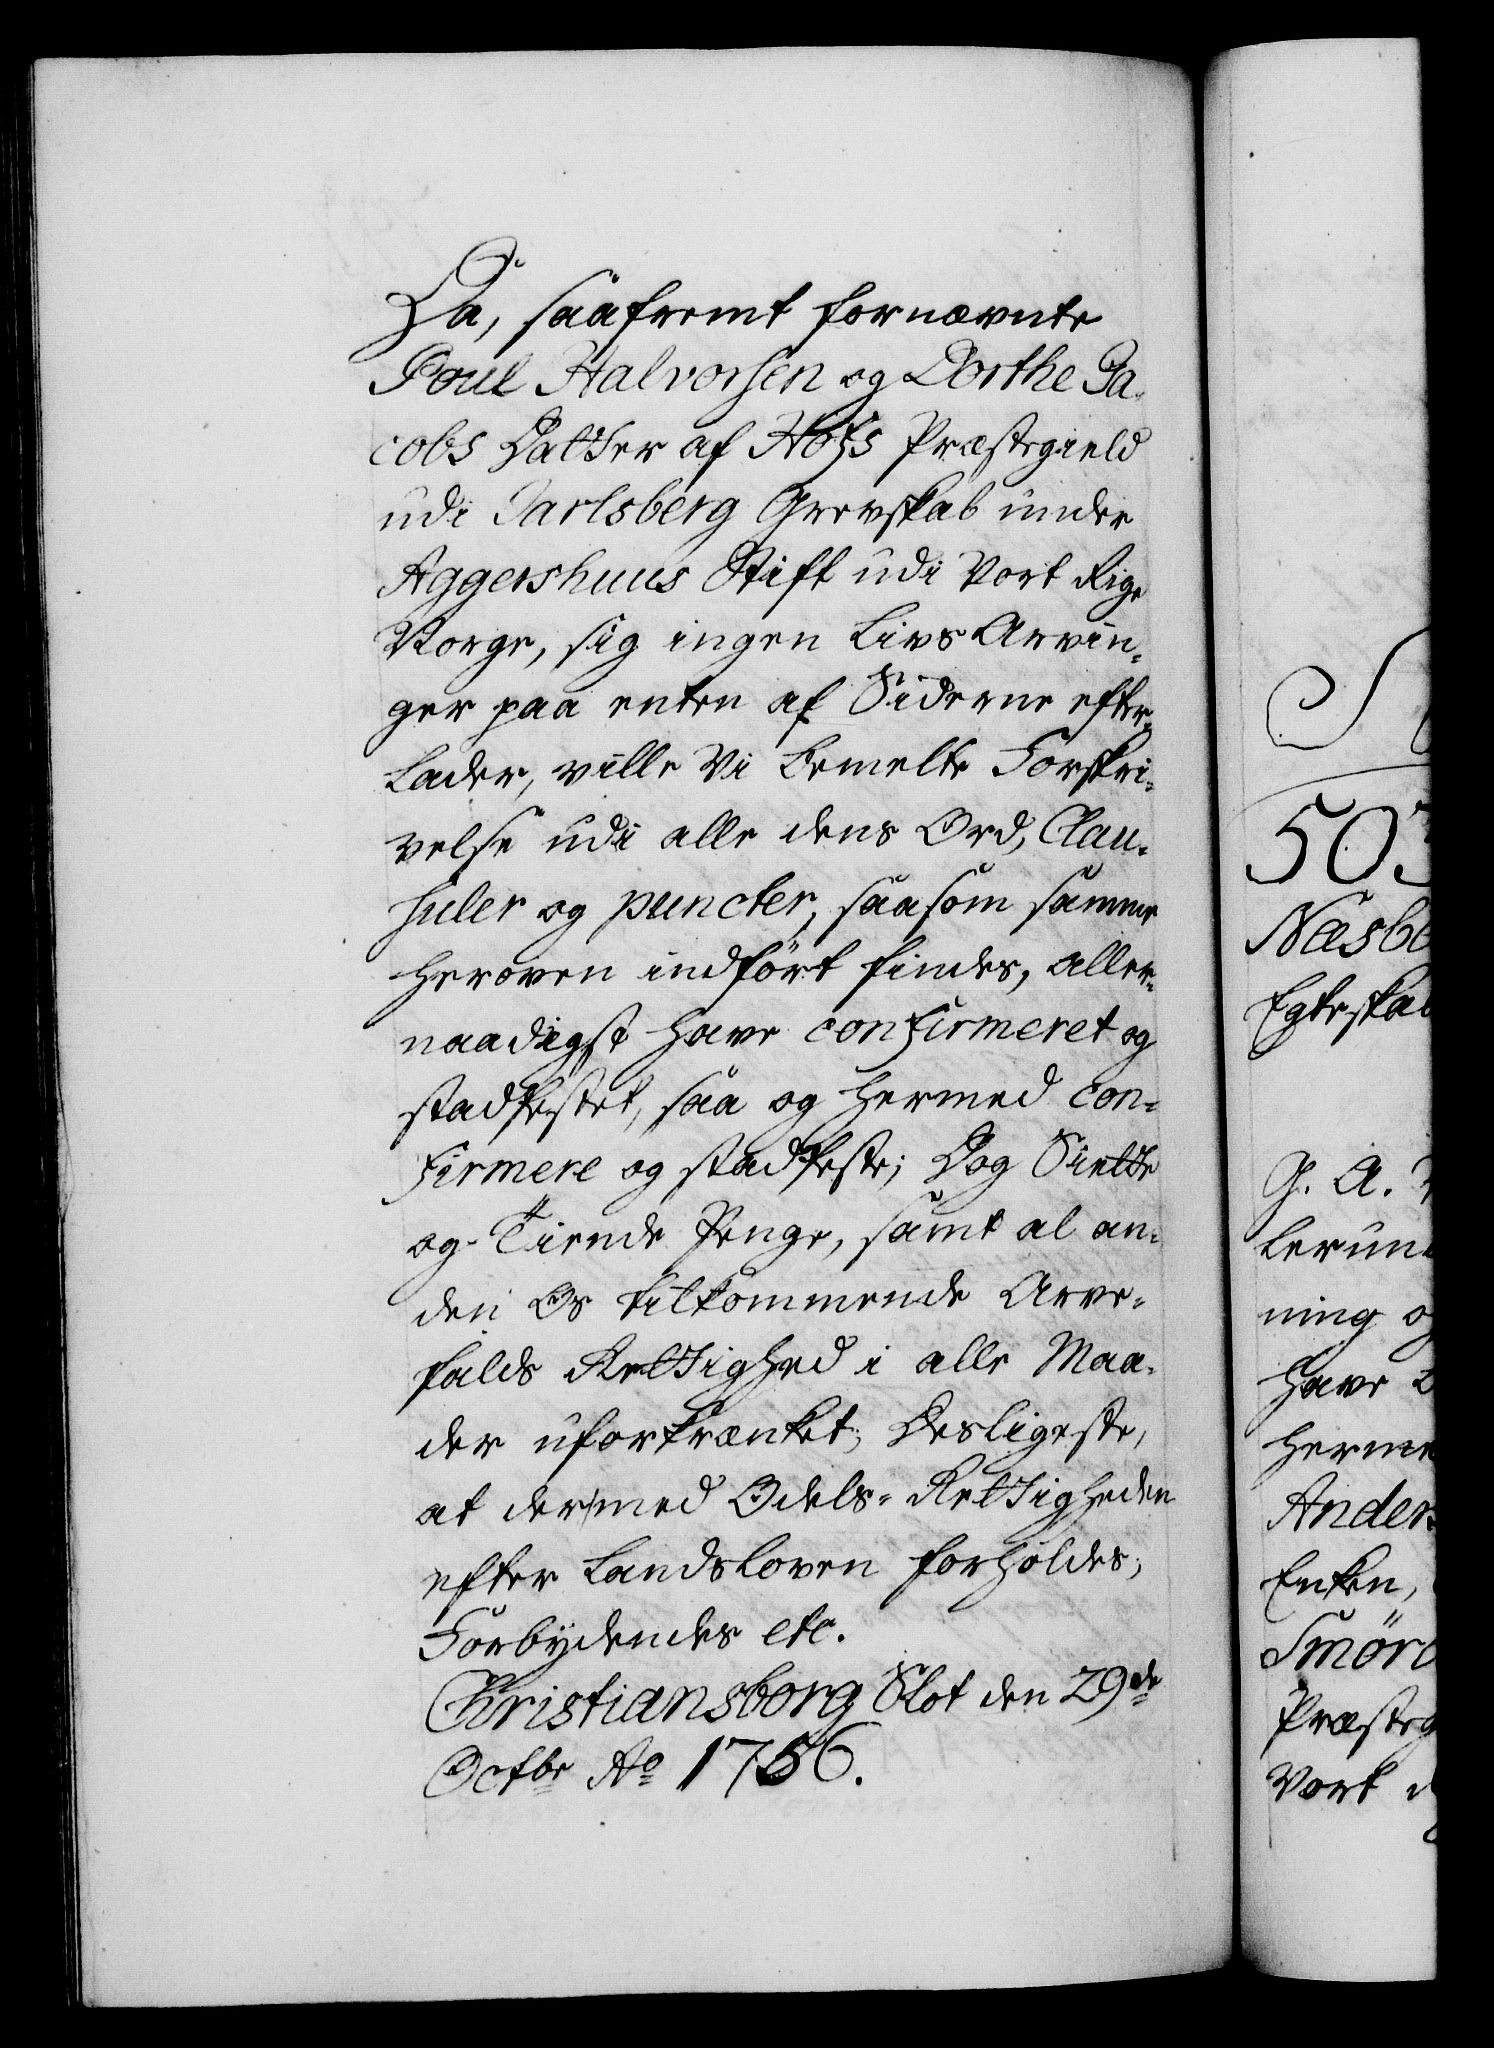 Da, saafremt fornævnte
Poul Halvorsen og Dorthe Ja-
cobs Datter af Hofs Præstegield
udi Jarlsberg Grevskab under
Aggershuus Stift udi Vort Rige
Norge, sig ingen Livs Arvin-
ger paa enten af Siderne efter-
lader, ville Vi bemelte Forskri-
velse udi alle dens Ord, Clau-
suler og puncter, saasom samme
heroven indført findes, aller-
naadigst have confirmeret og
stadfestet, saa og hermed con-
firmere og stadfeste; Dog Siette
og Tiende Penge, samt al an-
den Os tilkommende Arve-
falds Rettighed i alle Maa-
der uforkrænket; Desligeste,
at dermed Odels-Rettigheden
efter Landsloven forholdes;
Forbydendes etc.
Christiansborg Slot den 29de
Octbr Ao 1756.
503
Næsb
Egteskab
G. A.
lerun
ning o
have
herme
Anders
Enken,
Smør
Præsteg
Vort